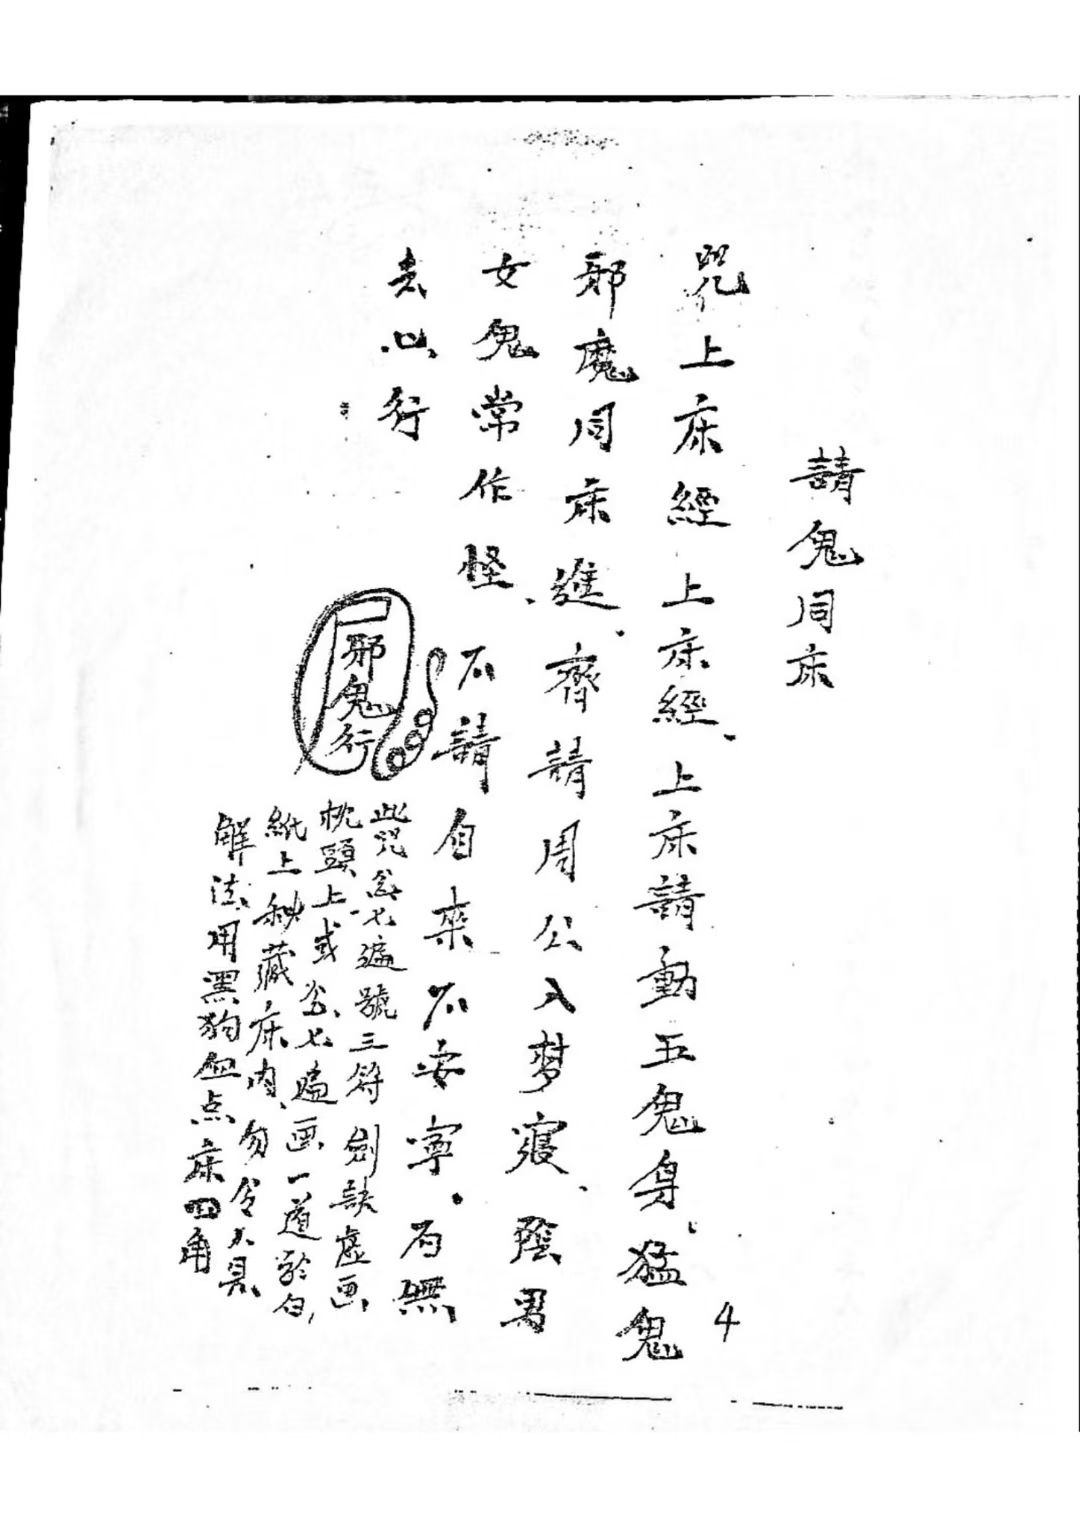 請鬼同床
咒上床經上床經、上床請動五鬼身、猛鬼
邪魔同床進、齊請周公入梦寝、陰男
女鬼常作怪、不請自来不安寧。有無
去心行
邪鬼行
此咒念七遍號三符劍訣虛画
枕頭上或念七遍画一道於白
紙上秘藏床内、勿令人見
解法用黑狗血点床四角
4